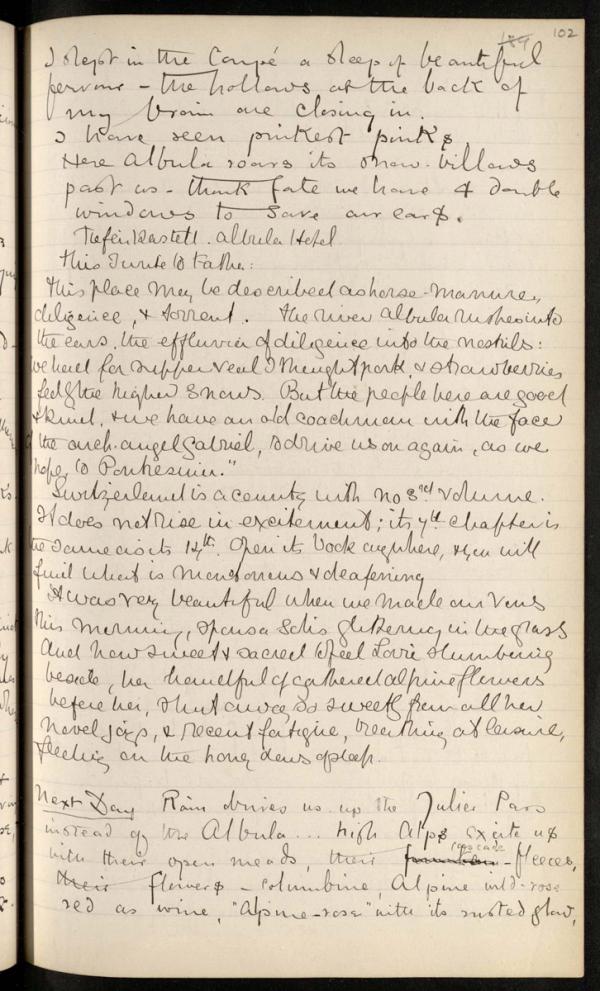 189 102
I slept in the Coupé a sleep of beautiful
fervour – the hollows at the back of
my brain are closing in.
I have seen pinkest pinks
Here Albula roars its snow-billows
past us – thank fate we have 4 double
windows to save our ears.
Tiefenkastell. Albula Hotel
This I write to Father:
This place may be described as horse-manure,
diligence, & torrent. The river Albula rushes into
the ears, the effluvia of diligence into the nostrils:
we had for supper veal I thought pork, & strawberries
fed of the higher snows. But the people here are good
& kind, & we have an old coachman with the face
of the arch-angel Gabriel, to drive us on again, as we
hope, to Pontresina."
Switzerland is a country with no 3rd volume.
It does not rise in excitement; its 7th chapter is
the same as its 12th. Open its book anywhere, & you will
find what is monotonous & deafening
It was very beautiful when we made our
this morning, glittering in the grass
And how sweet & sacred to feel Love slumbering
beside, her handful of gathered alpine flowers
before her, shut away so sweetly from all her
novel joys, & recent fatigue, breathing at leisure,
feeding on the honey dews of sleep.
Next Day Rain drives us up the Julier Pass
instead of the Albula... high Alps excite us
cascade
with their open meads, their – fleeces,
their flowers – columbine, Alpine wild-rose
red as wine, "Alpine-rose" with its rusted glow,